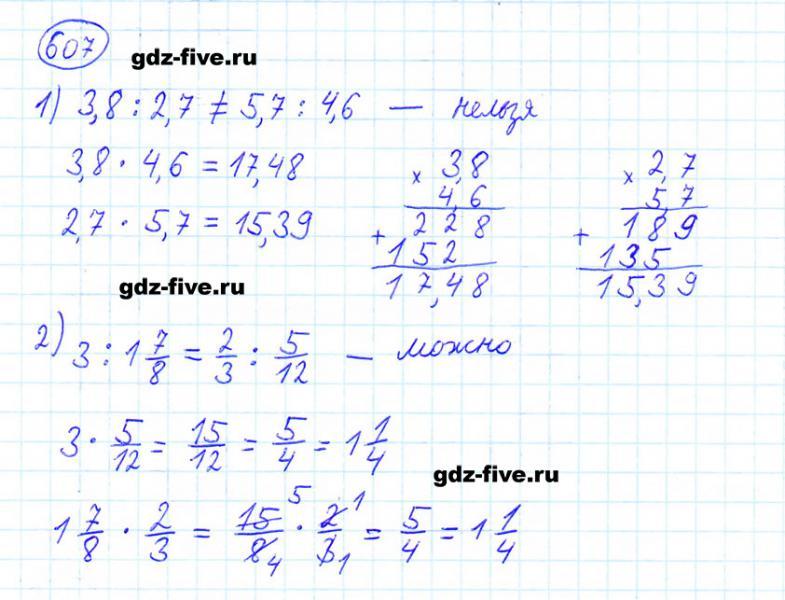 607
gdz-five.ru
1) 3,8 : 2,7 ≠ 5,7 : 4,6 — нельзя
3,8 · 4,6 = 17,48
2,7 · 5,7 = 15,39
× 3,8
4,6
+ 228
152
17,48
× 2,7
5,7
+ 189
135
15,39
gdz-five.ru
2) 3 : 1 7/8 = 2/3 : 5/12 — можно
3 · 5/12 = 15/12 = 5/4 = 1 1/4
gdz-five.ru
1 7/8 · 2/3 = 15 5/8 4 · 2 1/3 1 = 5/4 = 1 1/4